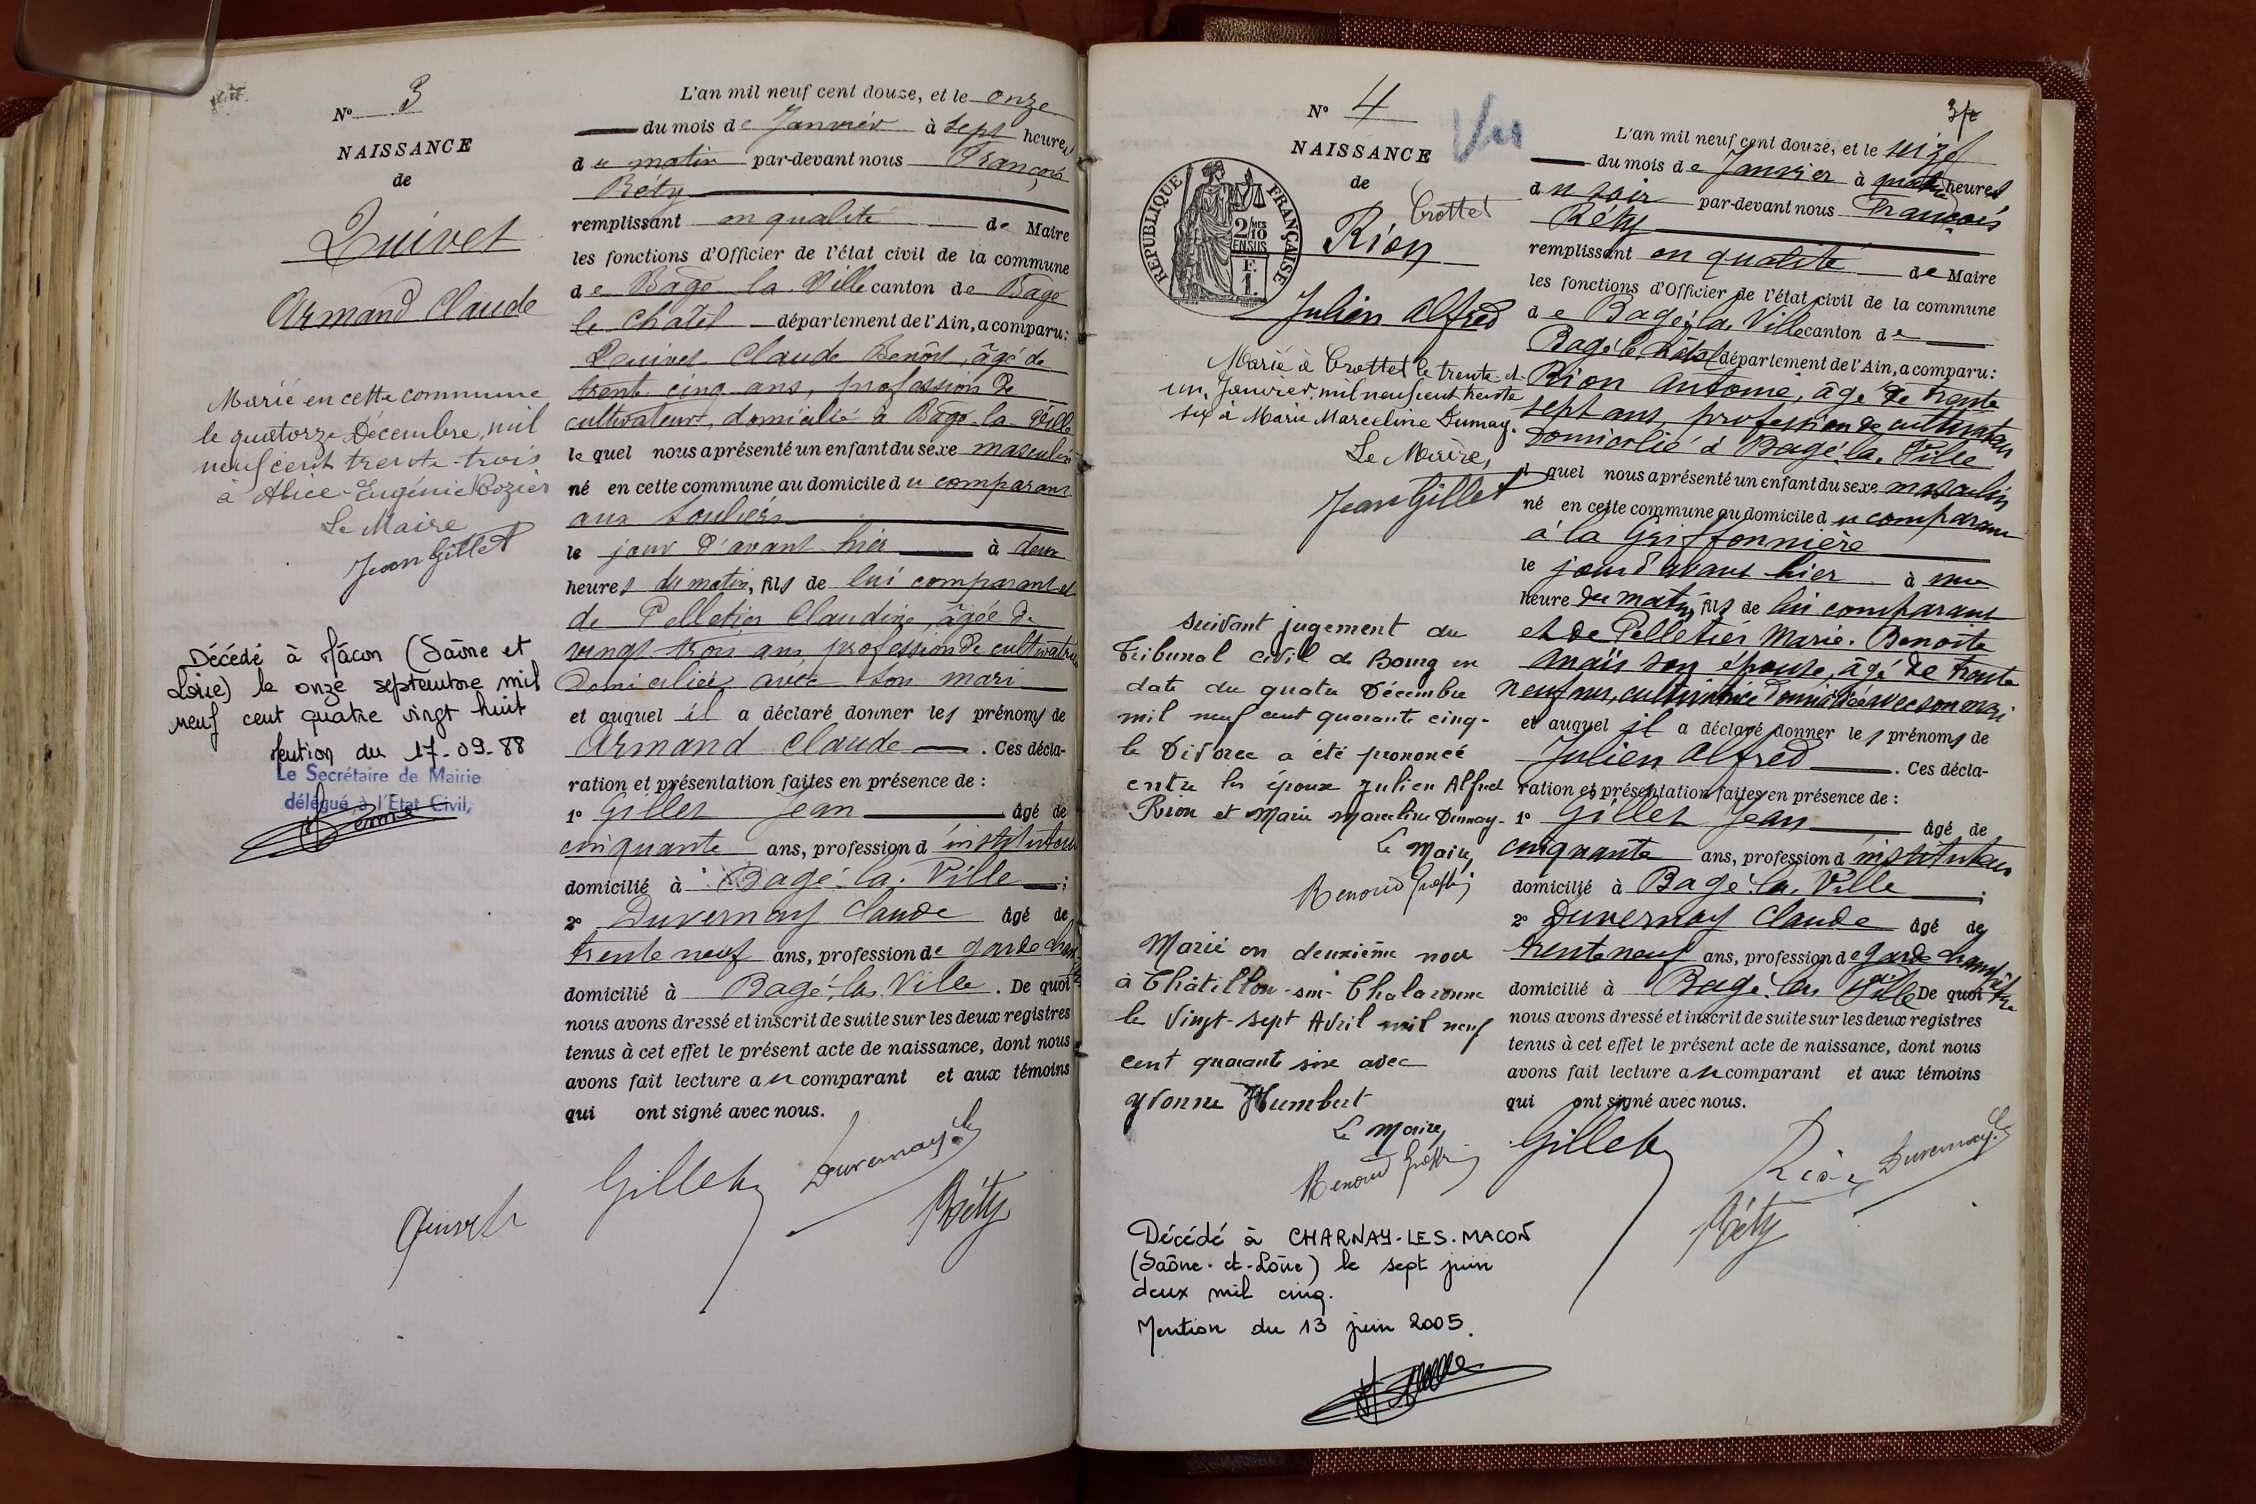 N° 3
NAISSANCE
de
Quivet
Armand Claude
Marié en cette commune
le quatorze Décembre, mil
neuf cent trente-trois
à Alice-Eugénie Rozier
Le Maire
Jean Gillet
Décédé à Mâcon (Saône et
Loire) le onze septembre mil
neuf cent quatre vingt huit
Mention du 17-09-88
Le Secrétaire de Mairie
délégué à l'Etat Civil,
L'an mil neuf cent douze, et le onze
du mois de Janvier à sept heures
du matin par-devant nous François
Réty
remplissant en qualité de Maire
les fonctions d'Officier de l'état civil de la commune
de Bagé la Ville canton de Bagé
le Châtel département de l'Ain, a comparu:
Quivet Claude Benôit, âgé de
trente cinq ans, profession de
cultivateur, domicilié à Bagé-la-Ville
lequel nous a présenté un enfant du sexe masculin
né en cette commune au domicile du comparant
aux Souliers
le jour d'avant hier à deux
heures du matin, fils de lui comparant et
de Pelletier Claudine, âgée de
vingt trois ans, profession de cultivatrice
domiciliée avec son mari
et auquel il a déclaré donner les prénoms de
Armand Claude. Ces décla-
ration et présentation faites en présence de:
1° Gillet Jean âgé de
cinquante ans, profession d'instituteur
domicilié à Bagé-la-Ville;
2° Duvernay Claude âgé de
trente neuf ans, profession de garde champêtre
domicilié à Bagé-la-Ville. De quoi
nous avons dressé et inscrit de suite sur les deux registres
tenus à cet effet le présent acte de naissance, dont nous
avons fait lecture au comparant et aux témoins
qui ont signé avec nous.
Quivet Gillet Duvernay Cl Réty
3
N° 4
Vu
NAISSANCE
de
Crottet
RÉPUBLIQUE FRANÇAISE
2/10 MES
EN SUS
F.
1.
Rion
Julien Alfred
Marié à Crottet le trente-et-
un Janvier, mil neuf cent trente
six à Marie Marceline Dumay.
Le Maire,
Jean Gillet
Suivant jugement du
Tribunal civil de Bourg en
date du quatre Décembre
mil neuf cent quarante cinq-
le Divorce a été prononcé
entre les époux Julien Alfred
Rion et Marie Marceline Dumay-
Le Maire,
Renoud
Marié en deuxième noce
à Châtillon-sur-Chalaronne
le Vingt-sept Avril mil neuf
cent quarante six avec
Yvonne Humbert
Le Maire,
Renoud
Décédé à CHARNAY-LES-MACON
(Saône-et-Loire) le sept juin
deux mil cinq.
Mention du 13 juin 2005.
L'an mil neuf cent douze, et le seize
du mois de Janvier à quatre heures
du soir par-devant nous François
Réty
remplissant en qualité de Maire
les fonctions d'Officier de l'état civil de la commune
de Bagé-la-Ville canton de
Bagé le Châtel département de l'Ain, a comparu:
Rion Antoine, âgé de trente
sept ans, profession de cultivateur
domicilié à Bagé-la-Ville
lequel nous a présenté un enfant du sexe masculin
né en cette commune au domicile du comparant
à la Griffonnière
le jour d'avant hier à une
heure du matin, fils de lui comparant
et de Pelletier Marie-Benoite
Anaïs son épouse, âgé de trente
neuf ans, cultivatrice domiciliée avec son mari
et auquel il a déclaré donner les prénoms de
Julien Alfred. Ces décla-
ration et présentation faites en présence de:
1° Gillet Jean âgé de
cinquante ans, profession d'instituteur
domicilié à Bagé-la-Ville;
2° Duvernay Claude âgé de
trente neuf ans, profession de garde champêtre
domicilié à Bagé-la-Ville De quoi
nous avons dressé et inscrit de suite sur les deux registres
tenus à cet effet le présent acte de naissance, dont nous
avons fait lecture au comparant et aux témoins
qui ont signé avec nous.
Gillet Rion Duvernay Cl
Réty